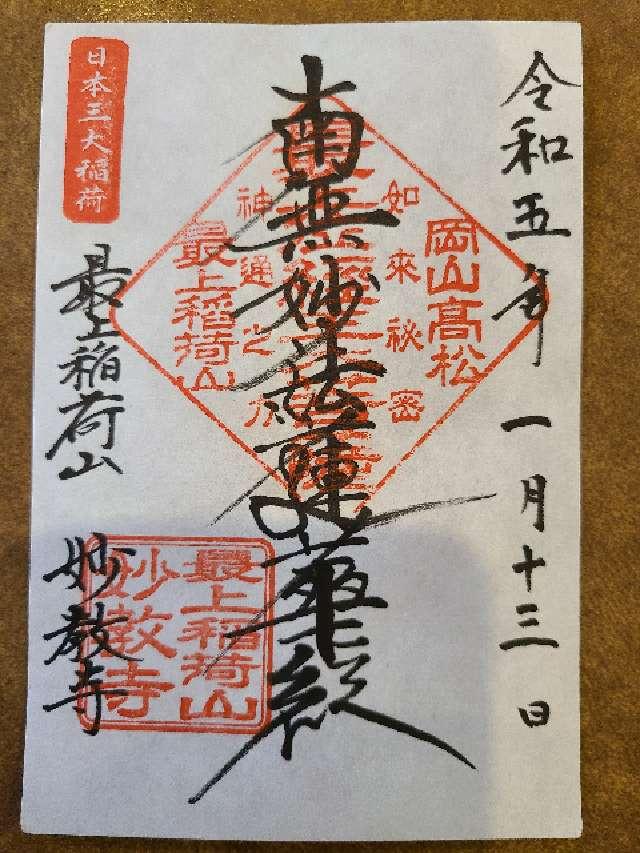 令和五年一月十三日
岡山高松
如來秘密
南無妙法蓮華経
神通之力
最上稲荷山
日本三大稲荷
最上稲荷山
妙教寺
最上稲荷山
妙教寺